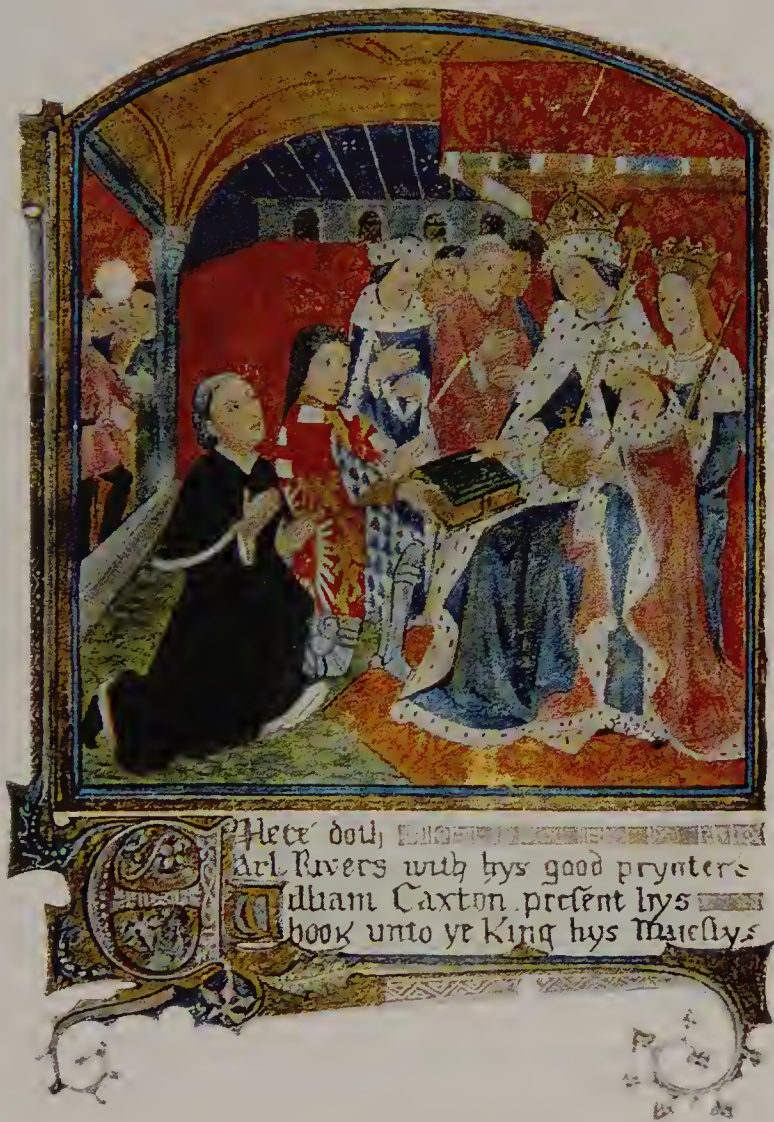 Here doth
Earl Rivers with hys good prynter
William Caxton present hys
book unto ye King hys Maiestys